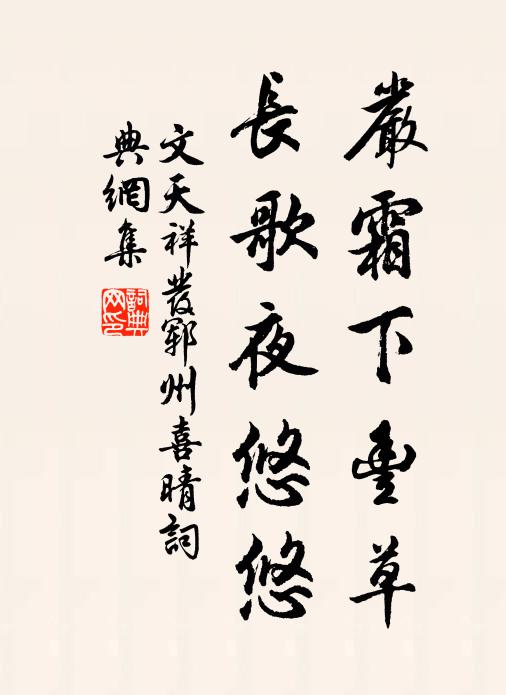 嚴霜下豐草
長歌夜悠悠
文天祥發鄆州喜晴詞
典網集
詞典網印